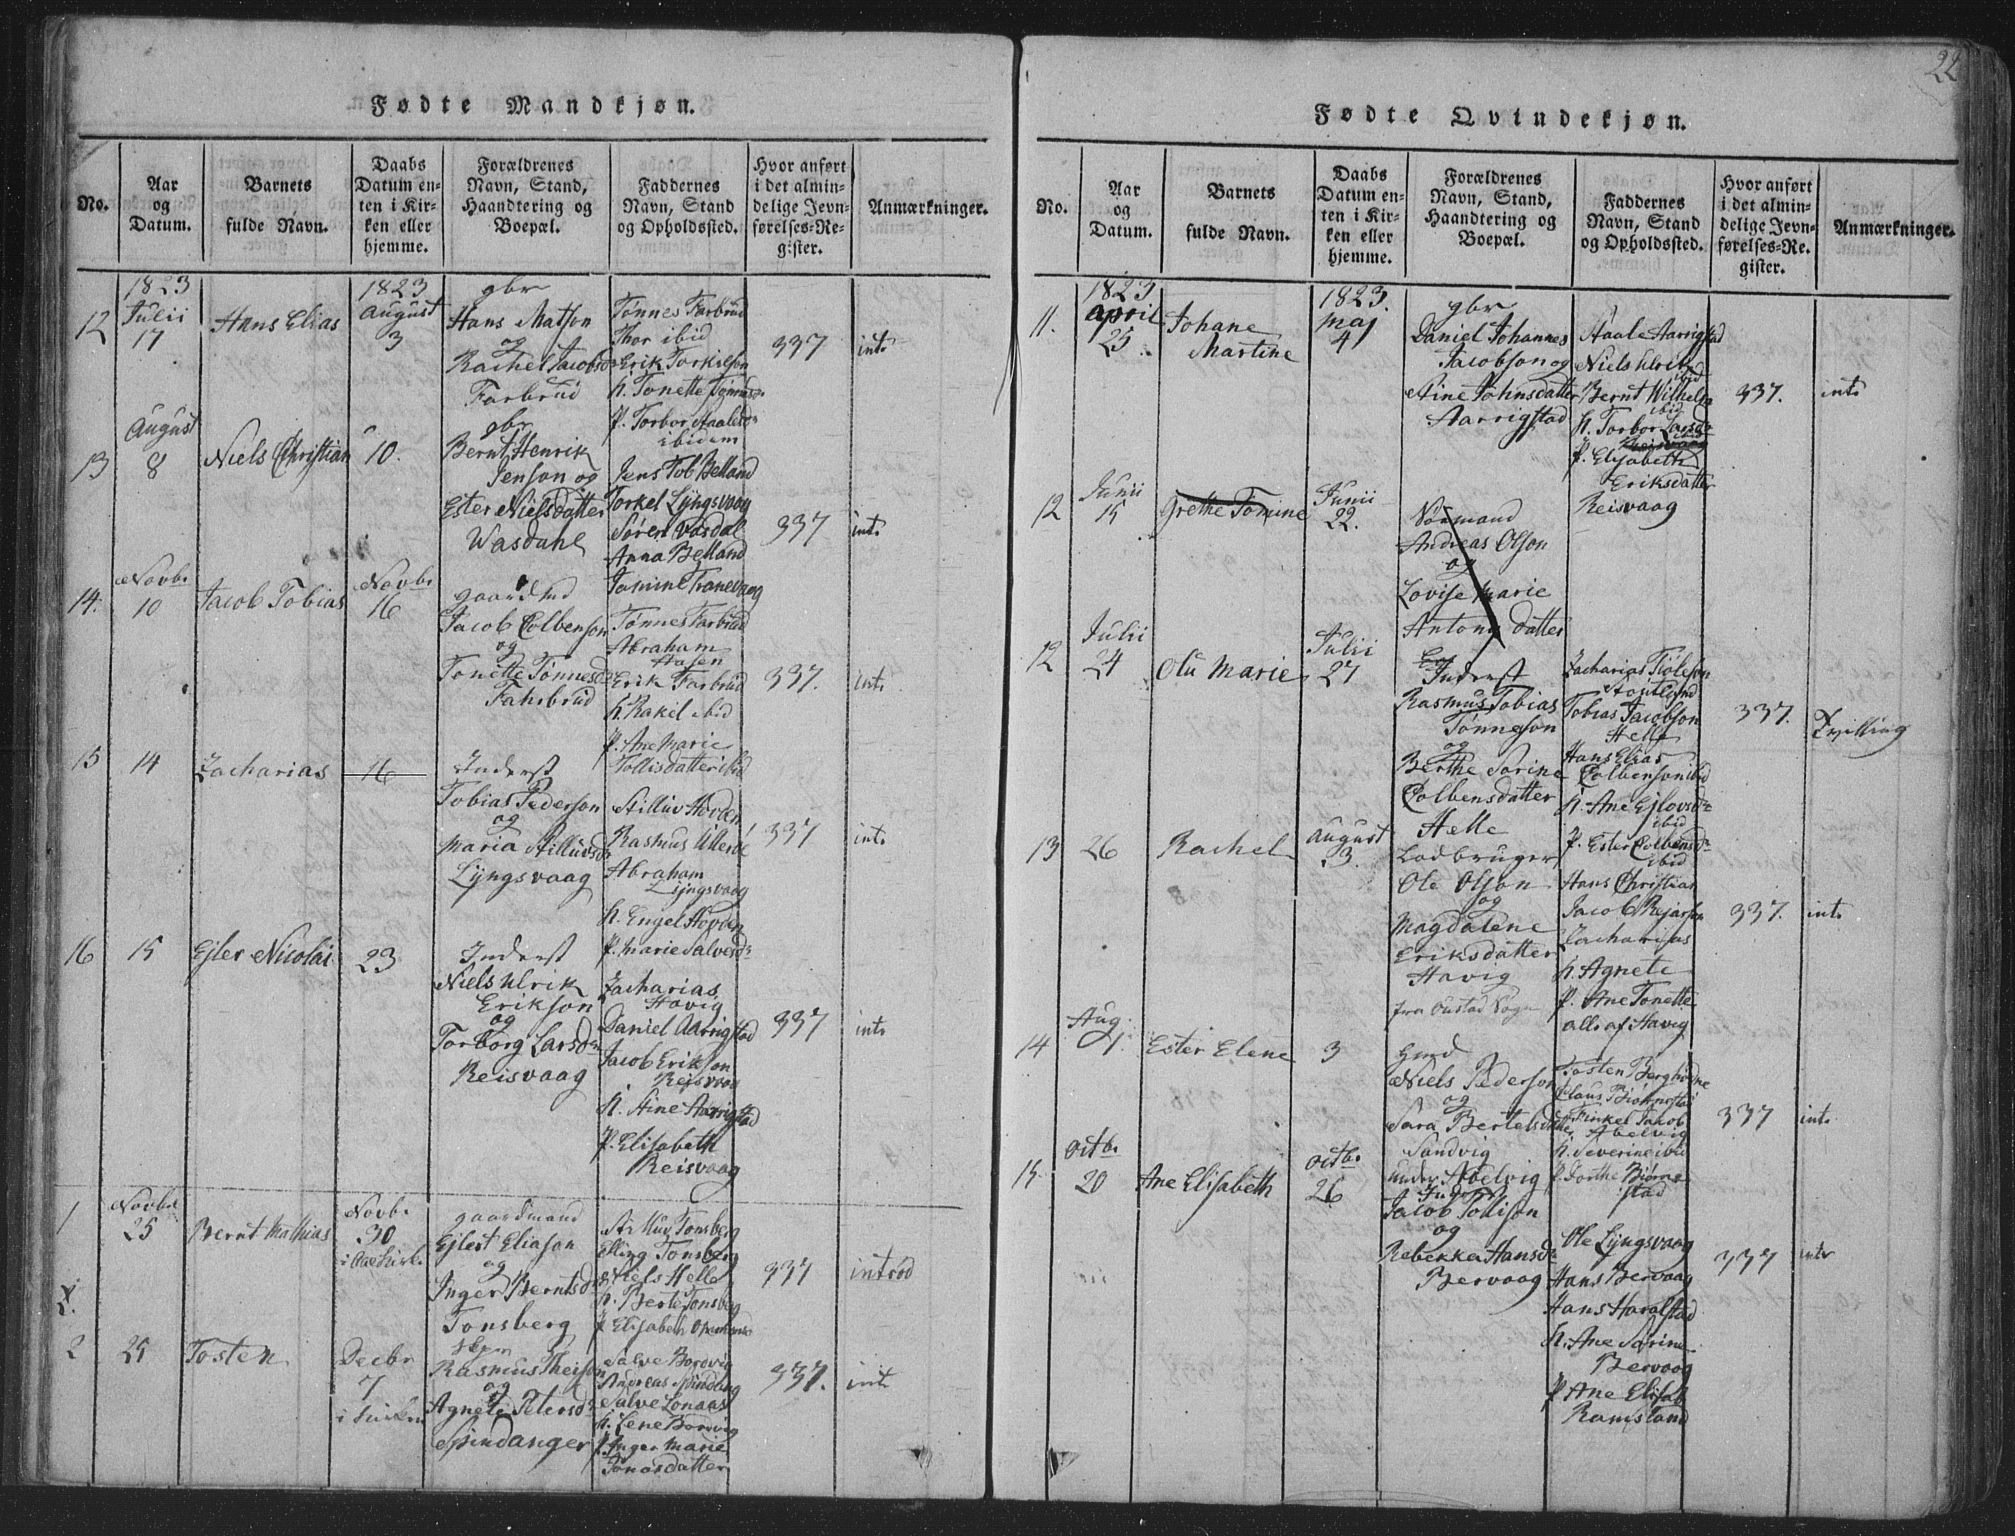 22
Fødte Mandkjøn.
No.
Aar
og
Datum.
Barnets
fulde Navn.
Daabs
Datum en-
ten i Kir-
ken eller
hjemme.
Forældrenes
Navn, Stand,
Haandtering og
Boepæl.
Faddernes
Navn, Stand
og Opholdssted.
Hvor anført
i det almin-
delige Jevn-
førelses-Re-
gister.
Anmærkninger.
12
1823
Julii
17
Hans Elias
1823
August
3
gbr
Hans Matson
og
Rachel Jacobsd
Farbrud
Tønnes Farbrud
Thor ibid
Erik Torkilson
h. Tonette Tønnesd
P. Torbor Aaalesd
ibidem
337
int
13
August
8
Niels Christian
10.
gbr
Bernt Henrik
Jenson og
Ester Nielsdatter
Wasdahl
Jens Tob Belland
Torkel Lyngsvaag
Søren Vasdal
Anna Belland
Tomine Tranevaag
337
int
14.
Novbr
10
Jacob Tobias
Novbr
16
gaardmd
Jacob Colbenson
og
Tonette Tønnesd
Fahrbrud
Tønnes Farbrud
Abraham
Aasen
Erik Farbrud
h. Rakel ibid
P. Ane Marie
Tollisdatter ibid
337.
int
15
14
Zacharias
16
Inderst
Tobias Pederson
og
Maria Stilluvsd
Lyngsvaag
Stilluv Hovan
Rasmus Ulleröe
Abraham
Lyngsvaag
h. Engel Hovan
P. Marie Salvesd
337
int
16
15
Ejler Nicolai
23
Inderst
Niels Ulrik
Erikson
og
Torborg Larsd
Reisvaag
Zacharias
Havig
Daniel Aarrigstad
Jacob Erikson
Reisvaag
h. Stine Aarrigstad
P. Elisabeth
Reisvaag
337
int
1
Novbr
25
Bernt Mathias
Novbr
30
gaardmand
Ejlert Eliason
og
Inger Berntsd
Tonsberg
Tonsberg
Elling Tonsberg
Niels Helle
h. Berte Tonsberg
P. Elisabeth
337
introd
2
25
Tosten
Decbr
7
Rasmus Theison
og
Agnete Petersd
Spindanger
Salve Bordvig
Andreas Spindang
Salve Lonaas
h. Lene Bordvig
P. Inger Marie
Jonasdatter
337.
int
Fødte Qvindekjøn.
No.
Aar
og
Datum.
Barnets
fulde Navn.
Daabs
Datum en-
ten i Kir-
ken eller
hjemme.
Forældrenes
Navn, Stand,
Haandtering og
Boepæl.
Faddernes
Navn, Stand
og Opholdssted.
Hvor anført
i det almin-
delige Jevn-
førelses-Re-
gister.
Anmærkninger.
11.
1823
April
25
Johane
Martine
1823.
Maj
4
gbr
Daniel Johannes
Jacobson og
Stine Johnsdatter
Aarrigstad
Staale Aarrigstad
Niels Ulrik
ibid
Bernt Wilhelm
ibid
h. Torbor Larsd
ibid
P. Elisabeth
Eriksdatter
Reisvaag
337.
int
12
Junii
15
Grethe Tomine
Junii
22.
Andreas Olson
og
Lovise Marie
Antonydatter
12
Julii
24
Olu Marie
Julii
27
Inderst
Rasmus Tobias
Tønneson
og
Berthe Sorine
Colbensdatter
Helle
Zacharias
Tobias Jacobson
Helle
Hans Elias
Colbenson ibid
h. Ane Ejlovsd
ibid
P. Ester Colbensd
ibid
337.
Tvilling
13
26
Rachel
August
3.
Ladbruger
Ole Olson
og
Magdalene
Eriksdatter
Havig
fra Oustad Sogn
Hans Christian
Jacob Rejarson
Zacharias
h. Agnete
P. Ane Tonette
alle af Havig
337.
int
14
Aug.
1.
Ester Elene
3
Niels Pederson
og
Sara Bertelsdatter
Sandvig
under Abelvig
Tosten
Claus Bjørnestad
Jacob
Abelvig
h. Severine ibid
P. Dorthe Bjørne
stad
337
int
15
Octbr
20
Ane Elisabeth
Octbr
26
Jacob Tollison
og
Rebekka Hansd
Bervaag
Ole Lyngsvaag
Hans Bervaag
Hans Haralstad
h. Ane Sørine
Bervaag
P. Ane Elisab
Ramsland
337
int